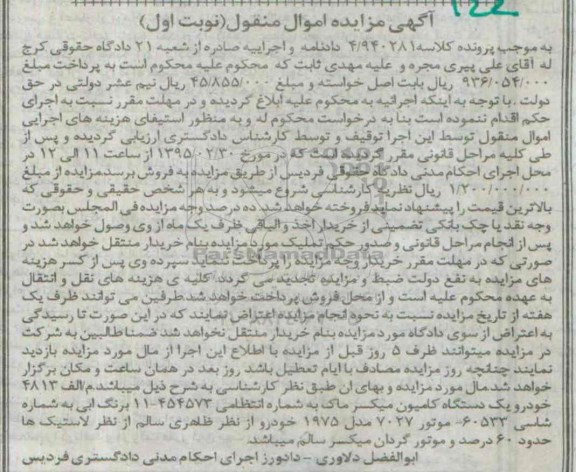 122
آگهی مزایده اموال منقول(نوبت اول)
به موجب پرونده کلاسه۴/۹۴۰۲۸۱ دادنامه و اجراییه صادره از شعبه ۲۱ دادگاه حقوقی کرج
له آقای علی پیری مجره و علیه مهدی ثابت که محکوم علیه محکوم است به پرداخت مبلغ
۹۳۶/۰۵۴/۰۰۰ ریال بابت اصل خواسته و مبلغ ۴۵/۸۵۵/۰۰۰ ریال نیم عشر دولتی در حق
دولت . با توجه به اینکه اجرائیه به محکوم علیه ابلاغ گردیده و در مهلت مقرر نسبت به اجرای
حکم اقدام ننموده است بنا به درخواست محکوم له و به منظور استیفای هزینه های اجرایی
اموال منقول توسط این اجرا توقیف و توسط کارشناس دادگستری ارزیابی گردیده و پس از
طی کلیه مراحل قانونی مقرر گردیده است که در مورخ ۱۳۹۵/۰۲/۳۰ از ساعت ۱۱ الی ۱۲ در
محل اجرای احکام مدنی دادگاه حقوقی فردیس از طریق مزایده به فروش برسد.مزایده از مبلغ
۱/۲۰۰/۰۰۰/۰۰۰ ریال نظریه کارشناسی شروع میشود و به هر شخص حقیقی و حقوقی که
بالاترین قیمت را پیشنهاد نماید فروخته خواهد شد. ده درصد وجه مزایده فی المجلس بصورت
وجه نقد یا چک بانکی تضمینی از خریدار اخذ و الباقی ظرف یک ماه از وی وصول خواهد شد و
پس از انجام مراحل قانونی و صدور حکم تملیک مورد مزایده بنام خریدار منتقل خواهد شد در
صورتی که در مهلت مقرر خریدار وجه مزایده را سپرده وی پس از کسر هزینه
های مزایده به نفع دولت ضبط و مزایده تجدید می گردد. کلیه ی هزینه های نقل و انتقال
به عهده محکوم علیه است و از محل فروش پرداخت خواهد شد طرفین می توانند ظرف یک
هفته از تاریخ مزایده نسبت به نحوه انجام مزایده اعتراض نمایند که در این صورت تا رسیدگی
به اعتراض از سوی دادگاه مورد مزایده بنام خریدار منتقل نخواهد شد ضمنا طالبین به شرکت
در مزایده میتوانند ظرف ۵ روز قبل از مزایده با اطلاع این اجرا از مال مورد مزایده بازدید
نمایند چنانچه روز مزایده مصادف با ایام تعطیل باشد روز بعد در همان ساعت و مکان برگزار
خواهد شد.مال مورد مزایده و بهای آن طبق نظر کارشناسی به شرح ذیل میباشد.م/الف ۴۸۱۳
خودرو یک دستگاه کامیون میکسر ماک به شماره انتظامی ۴۵۴۵۷۳-۱۱ برنگ ابی به شماره
شاسی ۶۰۵۳۳- موتور ۷۰۲۷ مدل ۱۹۷۵ خودرو از نظر ظاهری سالم از نظر لاستیک ها
حدود ۶۰ درصد و موتور گردان میکسر سالم میباشد
ابوالفضل دلاوری - دادورز اجرای احکام مدنی دادگستری فردیس